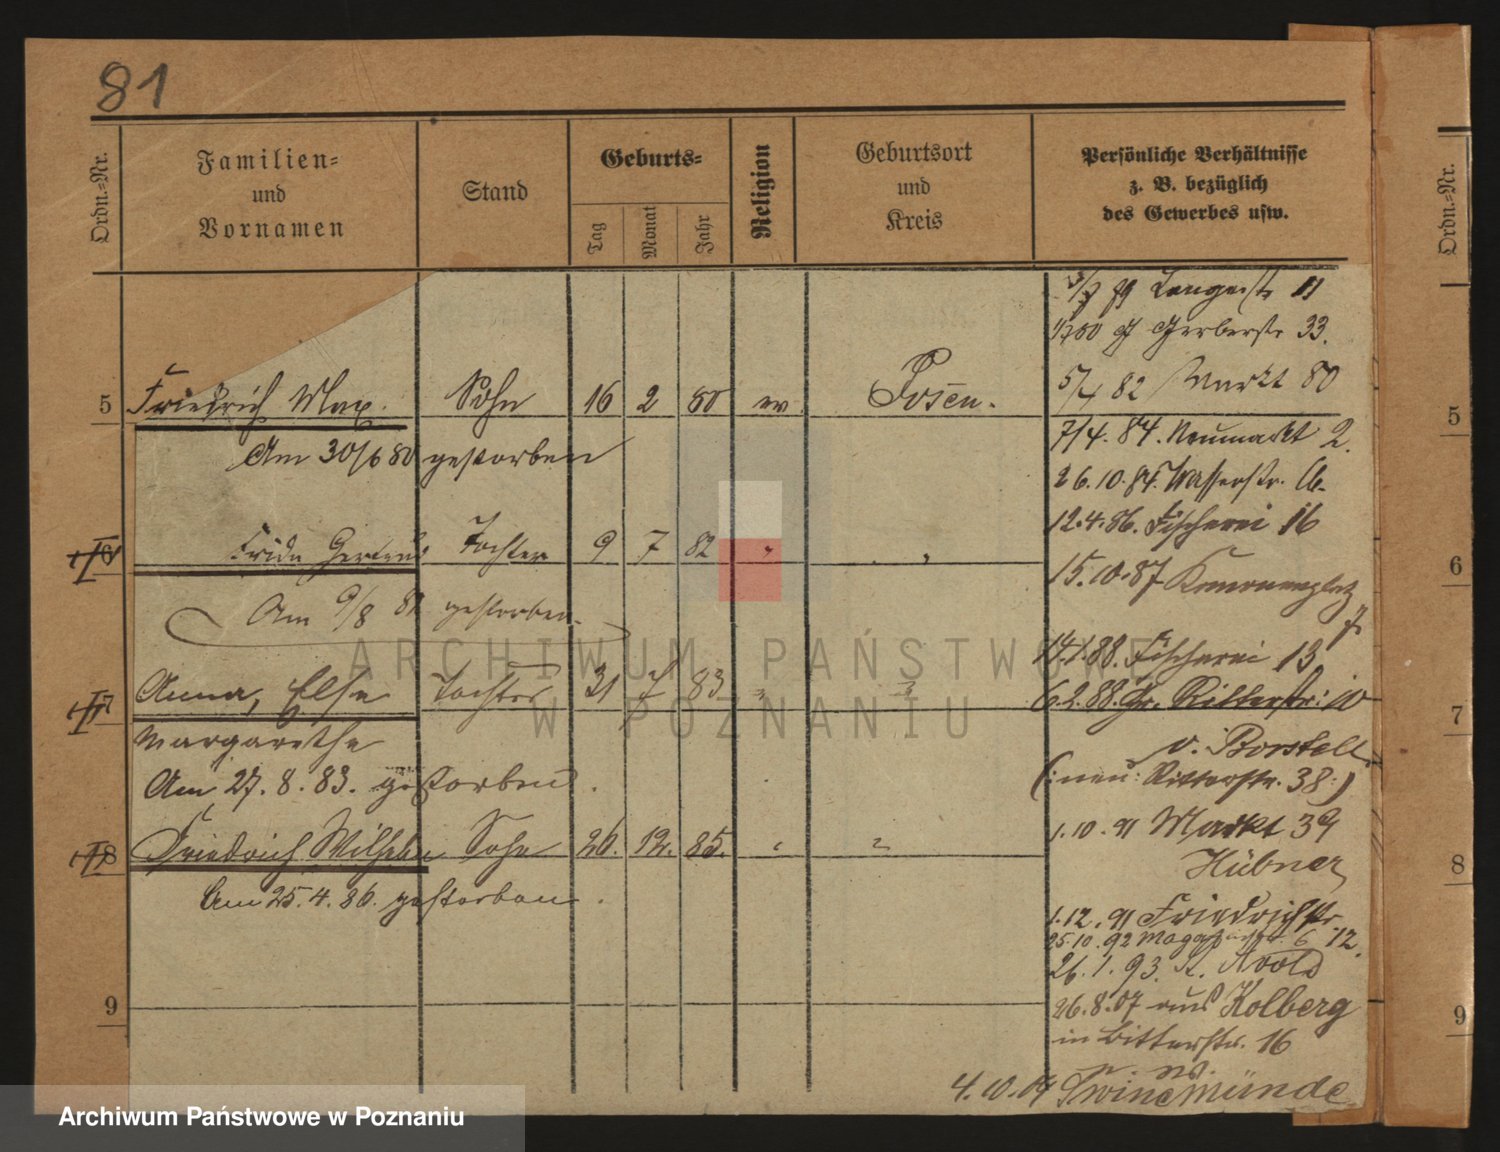 81
Ordn.-Nr.
Familien-
und
Vornamen
Stand
Geburts-
Tag
Monat
Jahr
Religion
Geburtsort
und
Kreis
Persönliche Verhältnisse
z. B. bezüglich
des Gewerbes usw.
Ordn.-Nr.
Langestr 11
Gerberstr 33.
5/4 82 Markt 80
5 Friedrich Max. Sohn 16 2 80 ev. Posen. 5
Am 30/6 80 gestorben
7/4. 84. Neumarkt 2.
26.10.84. Wasserstr.
12.4.86. Fischerei 16
6 Frida Gertrud Tochter 9 7 82 " " 6
15.10.87 Kanonenplatz
7.
Am 9/8 gestorben.
14.1.88. Fischerei 13
7 Anna, Else Tochter 31 7 83 " " 7
6.2.88. Gr. Ritterstr: 10
Margarethe
v. Borstell
(: neu: Ritterstr. 38:)
Am 27. 8. 83. gestorben.
8 Friedrich Wilhelm Sohn 26. 12. 85. " " 8
1.10.91 Markt 39
Hübner
Am 25. 4. 86. gestorben.
1.12.91 Friedrichstr.
12.
25.10.92 6
26.1.93. St. Avold
9 9
26.8.07 aus Kolberg
in Ritterstr. 16
4.10.09 Swinemünde
ARCHIWUM PAŃSTWOWE
W POZNANIU
Archiwum Państwowe w Poznaniu